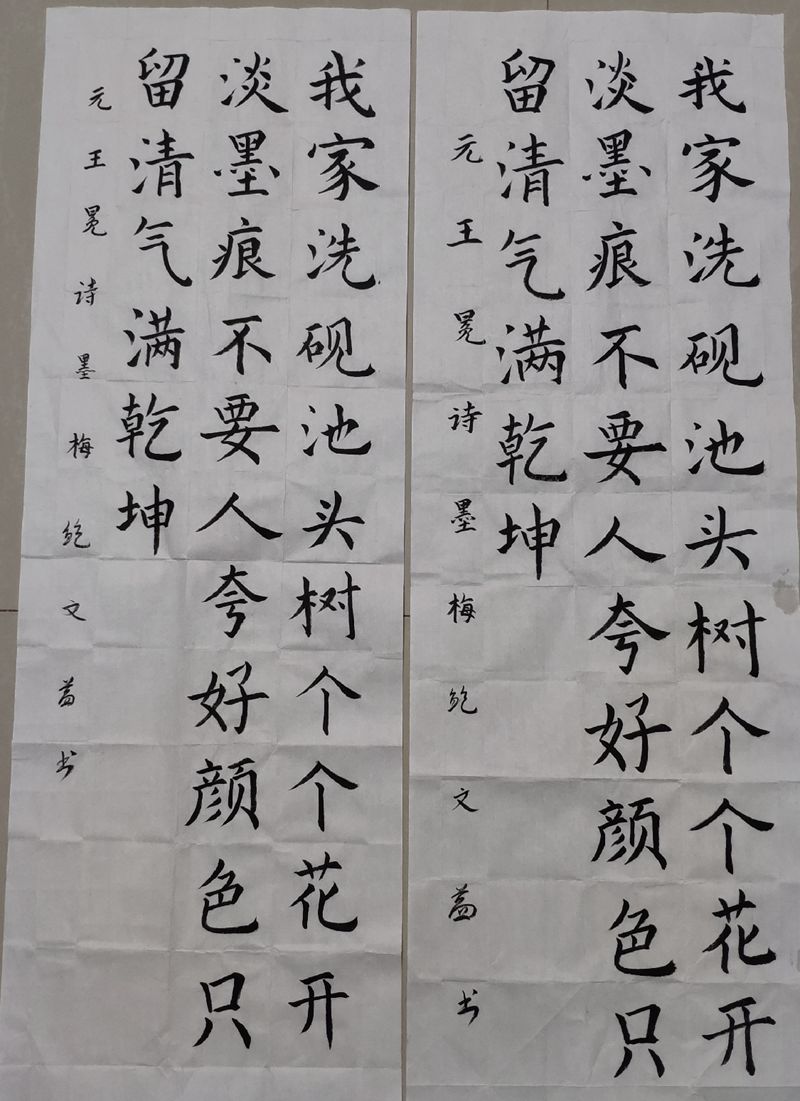 我家洗砚池头树个个花开
淡墨痕不要人夸好颜色只
留清气满乾坤
元王冕诗墨梅鲍文益书
我家洗砚池头树个个花开
淡墨痕不要人夸好颜色只
留清气满乾坤
元王冕诗墨梅鲍文益书